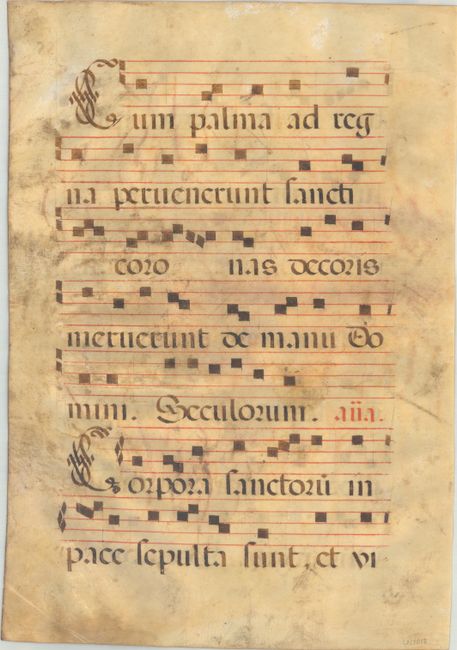 Cum palma ad reg
na peruenerunt sancti
coro nas decoris
meruerunt de manu Do
mini. Seculorum. aña.
Corpora sanctorū in
pace sepulta sunt, et vi